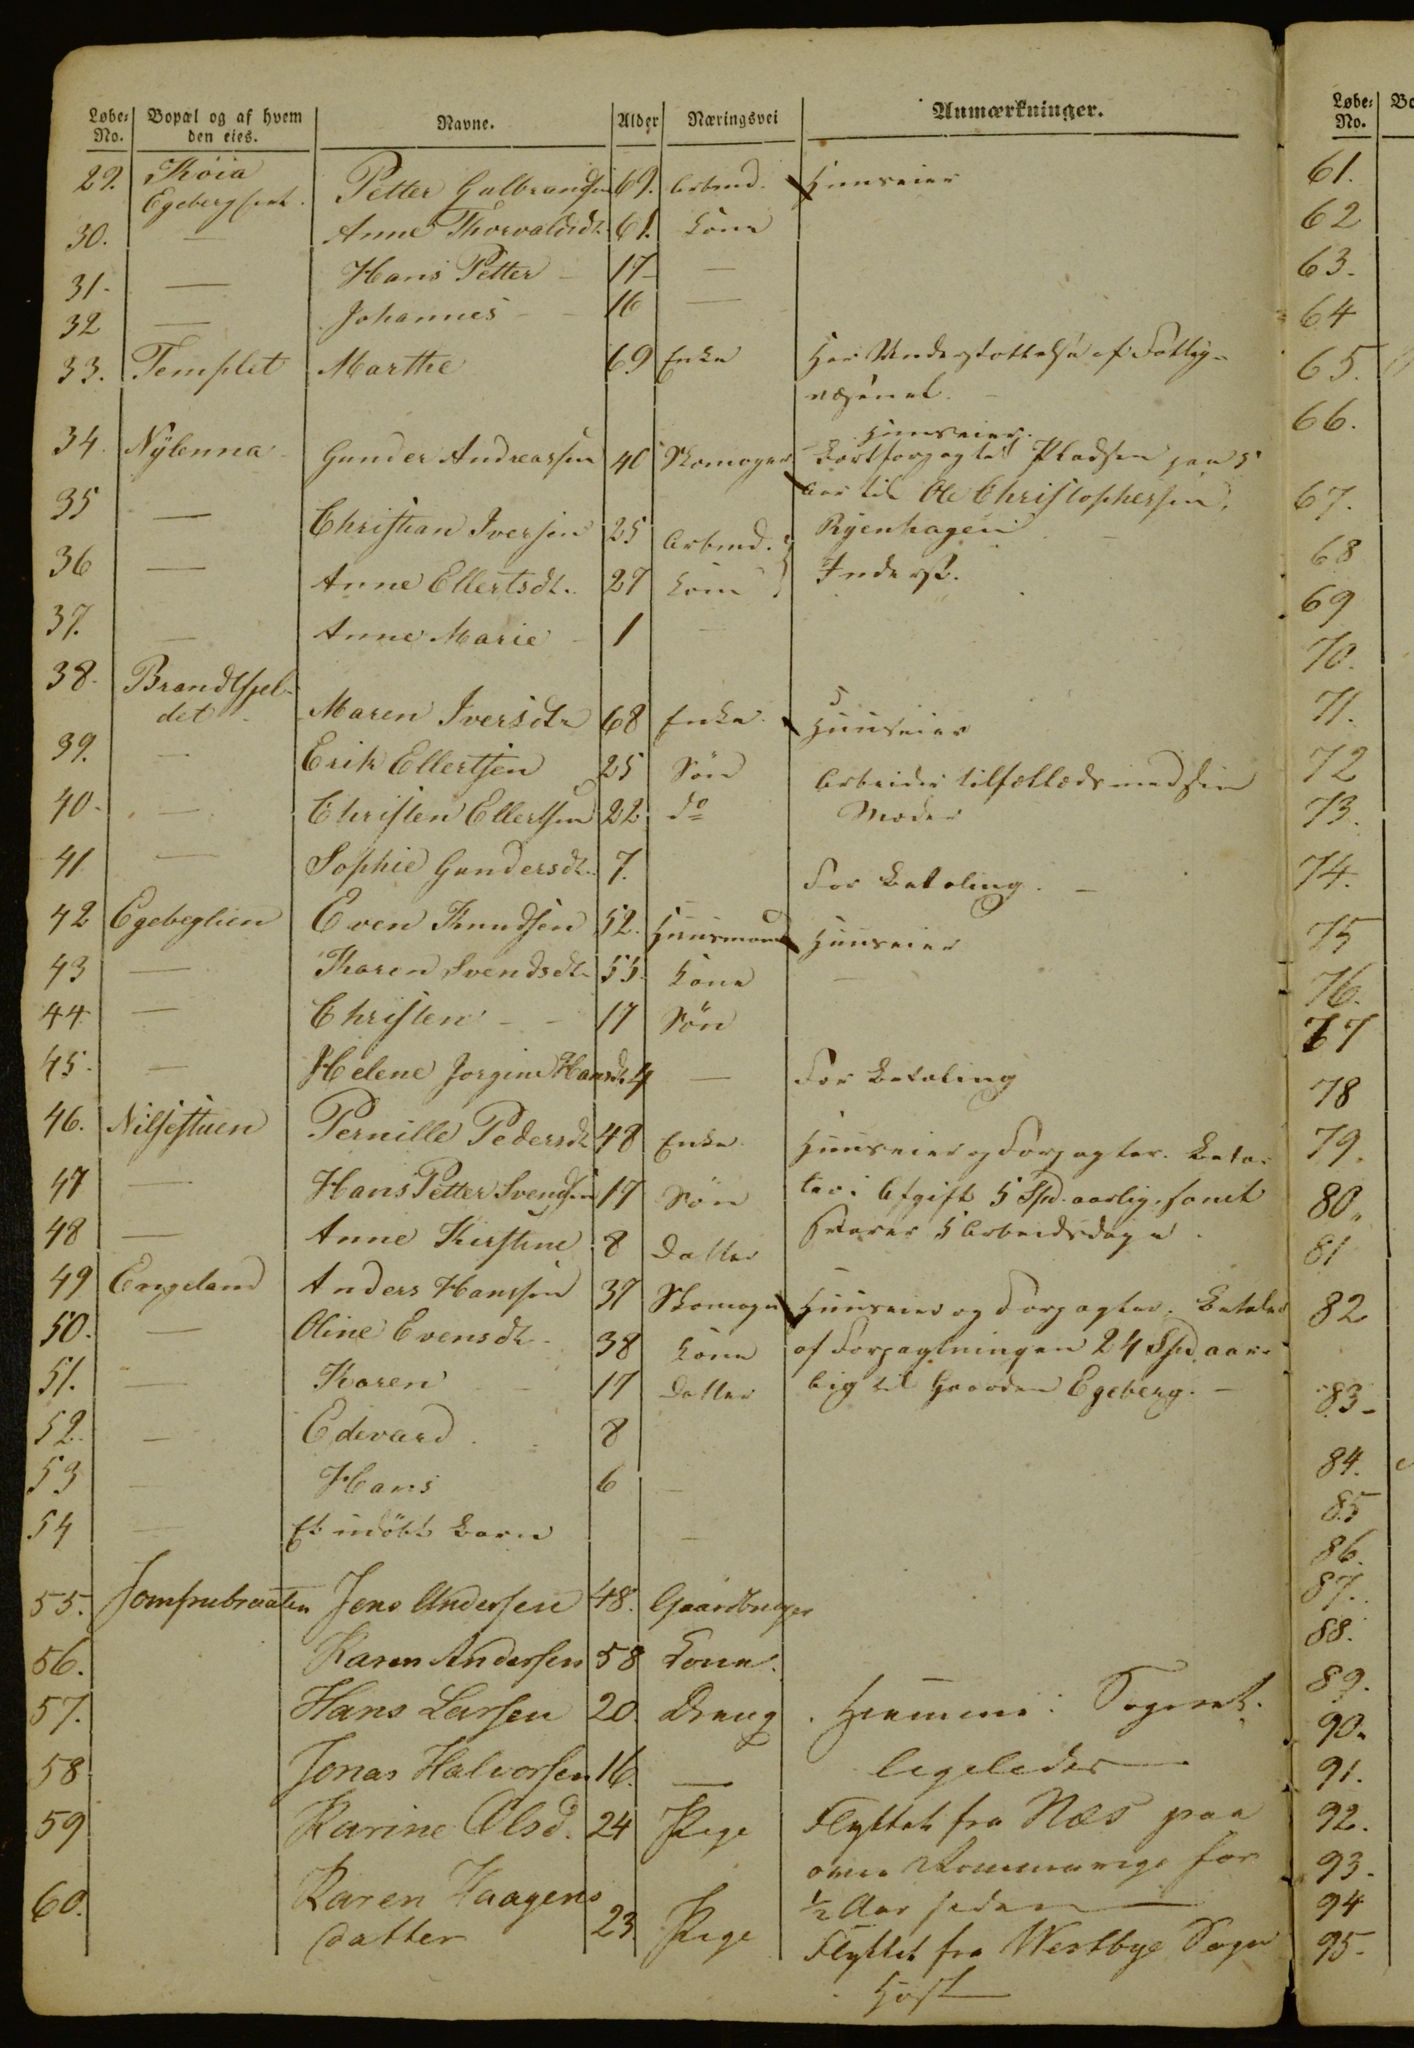 Løbe-No. Bopæl og af hvem den eies. Navne. Alder Næringsvei Anmærkninger.
29. Köia Egeberg Petter Gulbrandsen 69. Arbmd. Huuseier
30. — Anne Thorvaldsdt. 61. Kone
31. — Hans Petter — 17 —
32 — Johannes — 16 —
33. Templet Marthe 69 Enke Har Understøttelse af Fattig-
væsenet. —
34. Nÿlenna Gunder Andreassen 40 Skomager Huuseier. Bortforpagtet Pladsen paa 5
Aar til Ole Christophersen,
35 — Christian Iversen 25 Arbmd. Ryenhagen —
36 — Anne Ellertsdt. 27 Kone Inderst.
37. — Anne Marie — 1 —
38. Brandtfjel-
det Maren Iversdt. 68 Enke. Huuseier
39. — Erik Ellertsen 25 Søn Arbeider tilfælleds med sin
40. — Christen Ellertsen 22 do Moder
41 — Sophie Gundersdt. 7. For Betaling. —
42 Egebeglien Even Knudsen 52. Huusmand Huuseier
43 — Karen Svendsdt. 55. Kone —
44 — Christen — 17 Søn
45. — Helene Jorgine Hansdt. 4 — For Betaling
46. Nilsestuen Pernille Pedersdt. 48 Enke Huuseier og Forpagter. Beta-
47 — Hans Petter Svendsen 17 Søn ler i Afgift 5 Spd. aarlig, samt
48 — Anne Kirstine 8 Datter 5 Arbeidsdage.
49 Engeland Anders Hanssen 37 Skomager Huuseier og Forpagter. Betaler
50. — Oline Evensdt. 38 Kone af Forpagtningen 24 Spd. aar-
51. — Karen — 17 Datter lig til Gaarden Egeberg. —
52. — Edevard 8
53 — Hans 6 —
54 — Et udöbt Barn —
55. Jomfrubraaten Jens Andersen 48. Gaardbruger
56. Karen Andersen 58 Kone.
57. Hans Larsen 20. Dreng Hjemme i Sognet.
58 Jonas Halvorsen 16. — ligeledes —
59 Karine Olsd. 24 Pige Flyttet fra Næs paa
øvre Rommerige for
60. Karen Haagens 23 Pige ½ Aar siden —
datter Flyttet fra Westbye Sogn
Høst —
Løbe-No. Bo
61.
62
63.
64
65.
66.
67.
68
69
70.
71.
72
73.
74.
75
76.
77
78
79.
80.
81
82
83.
84.
85
86.
87.
88.
89.
90.
91.
92.
93.
94
95.